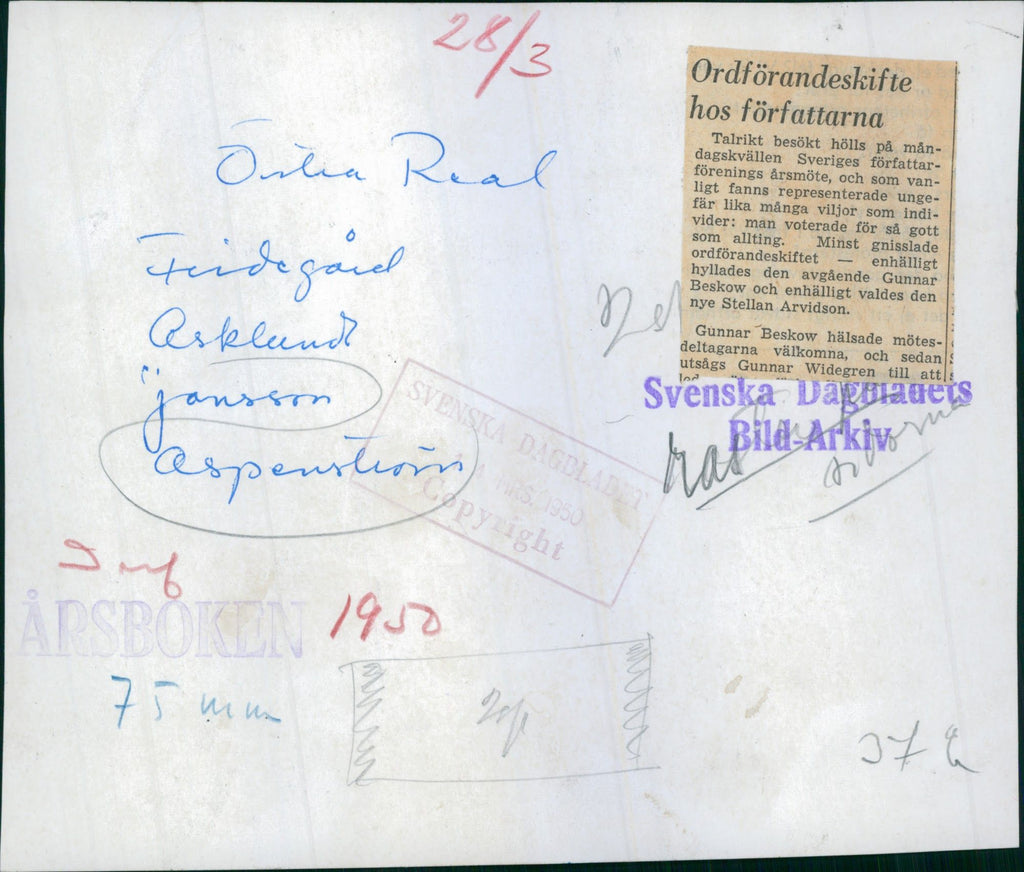 28/3
Östra Real
Fridegård
Asklund
"Jansson
Aspenström
Ordförandeskifte
hos författarna
Talrikt besökt hölls på mån-
dagskvällen Sveriges författar-
förenings årsmöte, och som van-
ligt fanns representerade unge-
fär lika många viljor som indi-
vider: man voterade för så gott
som allting. Minst gnisslade
ordförandeskiftet — enhälligt
hyllades den avgående Gunnar
Beskow och enhälligt valdes den
nye Stellan Arvidson.
Gunnar Beskow hälsade mötes-
deltagarna välkomna, och sedan
utsågs Gunnar Widegren till att
Svenska Dagbladets
Bild-Arkiv
SVENSKA DAGBLADET
MRS. 1950
Copyright
ÅRSBOKEN
1950
75 mm
2sp